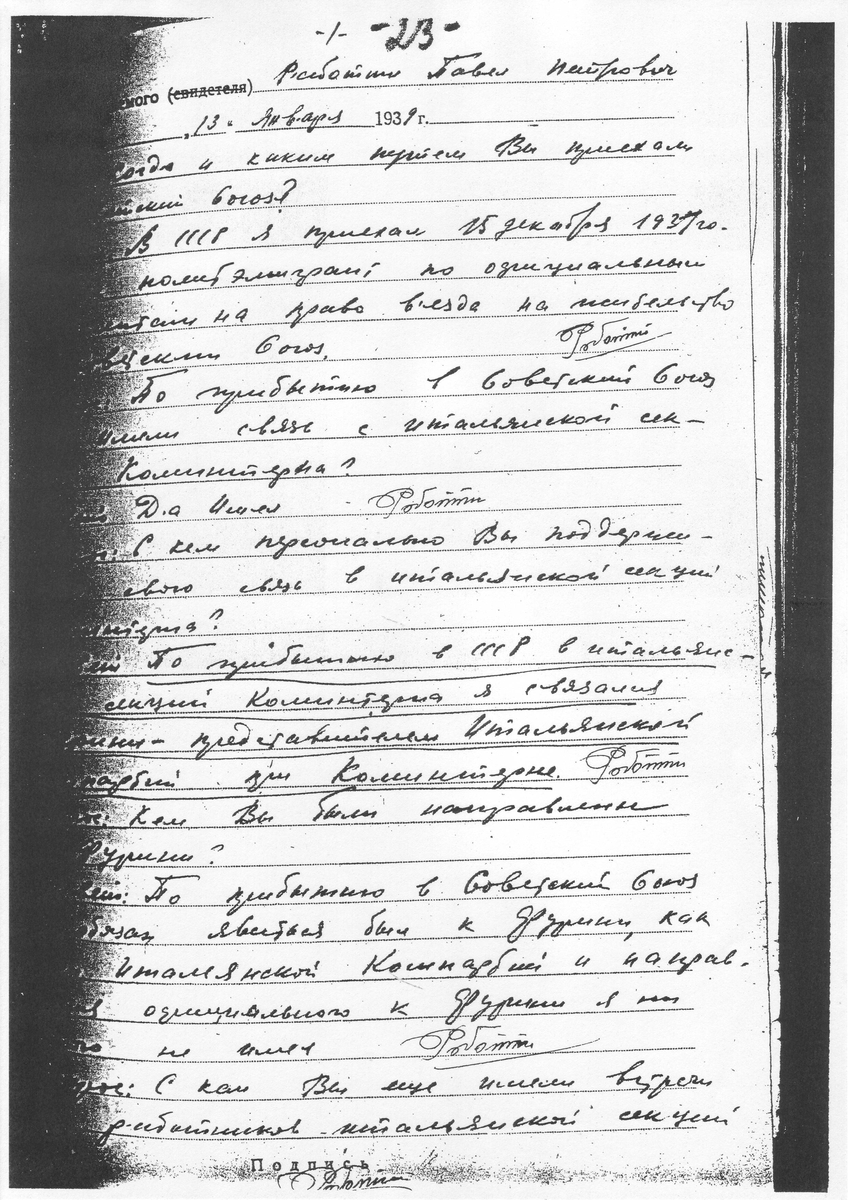 -1- -23-
емого (свидетеля) Работти Павел Петрович
„13" Января 1939 г.
когда и каким путем Вы приехали
тский Союз?
В СССР я приехал 15 декабря 193 го-
политэмигрант по официальным
нтам на право въезда на жительство
ветский Союз. Роботти
По прибытию в Советский Союз
имели связь с итальянской сек-
Коминтерна?
Да Имел Роботти
С кем персонально Вы поддержи-
свою связь в итальянской секции
интерна?
По прибытию в СССР в итальянс-
секции Коминтерна я связался
рини - представителем Итальянской
партии при Коминтерне. Роботти
ос: Кем Вы были направлены
Фурини?
вет: По прибытию в Советский Союз
обязан явиться был к Фурини, как
Итальянской Компартии и направ-
я официального к Фурини я ни
го не имел Роботти
рос: С кем Вы еще имели встречи
работников итальянской секции
Подпись
Роботти